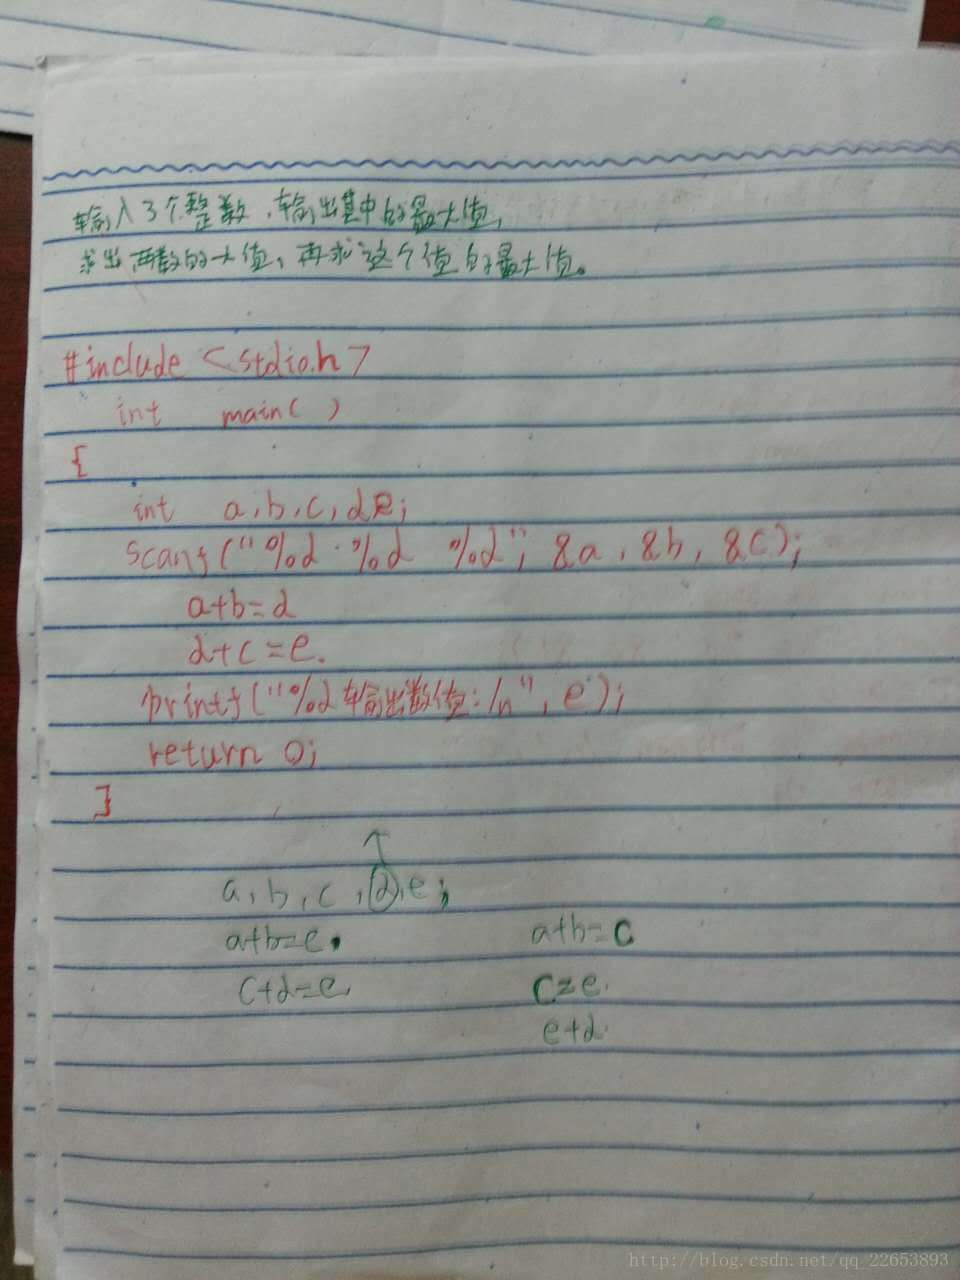 输入3个整数,输出其中的最大值,
求出两数的大值,再求这个值的最大值。
#include <stdio.h>
int main( )
{
int a,b,c,d e;
scanf("%d %d %d", &a, &b, &c);
a+b=d
d+c=e.
printf("%d输出数值:/n", e);
return 0;
}
a,b,c,d,e;
a+b=e.
a+b=c
c+d=e
c=e.
e+d
http://blog.csdn.net/qq_22653893